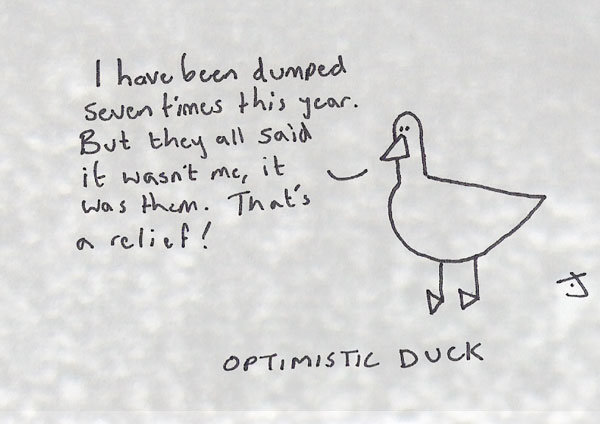 I have been dumped
seven times this year.
But they all said
it wasn't me, it
was them. That's
a relief!
OPTIMISTIC DUCK